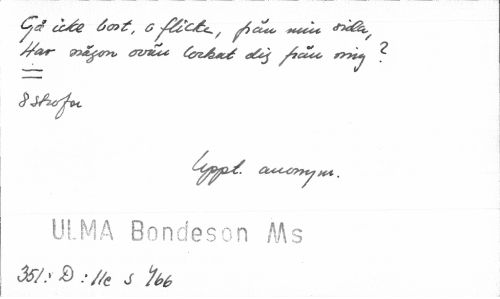 Gå icke bort, o flicka, från min sida,
Har någon ovän lockat dig från mig?
8 strofer
Uppt. anonym.
ULMA Bondeson Ms
351: D: 11c s 466